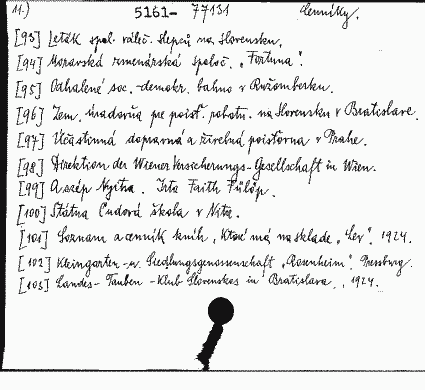 11.) 5161- 77131 Cenníky.
[93] Leták spol. váleč. slepců na Slovensku.
[94] Moravská zemenárská společ. "Fortuna".
[95] Odhalené soc.-demokr. bahno v Ružomberku.
[96] Zem. úradovňa pre poisť. robotn. na Slovensku v Bratislave.
[97] Účastinná dopravná a živelná poisťovna v Prahe.
[98] Direktion der Wiener Versicherungs-Gesellschaft in Wien.
[99] A szép Nyitra. Irta Faith Fülöp.
[100] Štátna ľudová škola v Nitre.
[101] Soznam a cenník kníh, ktoré má na sklade "Lev". 1924.
[102] Kleingarten-u. Siedlungsgenossenschaft "Rosenheim". Pressburg.
[103] Landes-Tauben-Klub Slovenskos in Bratislava., 1924.